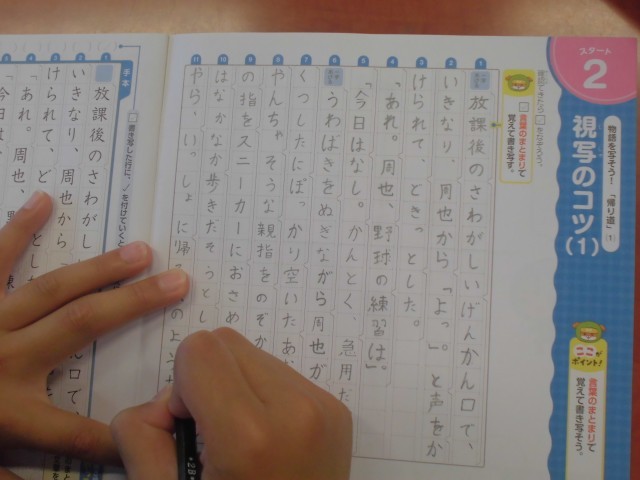 スタート
2
物語を写そう！「帰り道」①
視写のコツ(1)
言葉のまとまりで
覚えて書き写す。
ここがポイント！
言葉のまとまりで
覚えて書き写そう。
放課後のさわがしいげんかん口で、
いきなり、周也から「よっ。」と声をか
けられて、どきっとした。
「あれ。周也、野球の練習は。」
「今日はなし。かんとく、急用だ
うわばきをぬぎながら周也が
くつしたにぽっかり空いたあな
やんちゃそうな親指をのぞか
の指をスニーカーにおさめ
はなかなか歩きだそうとし
やら、いっしょに帰る
手本
書き写した行に、✓を付けていくと
放課後のさわがし
口で、
いきなり、周也から
けられて、ど
とした
「あれ。周也、野
「今日は